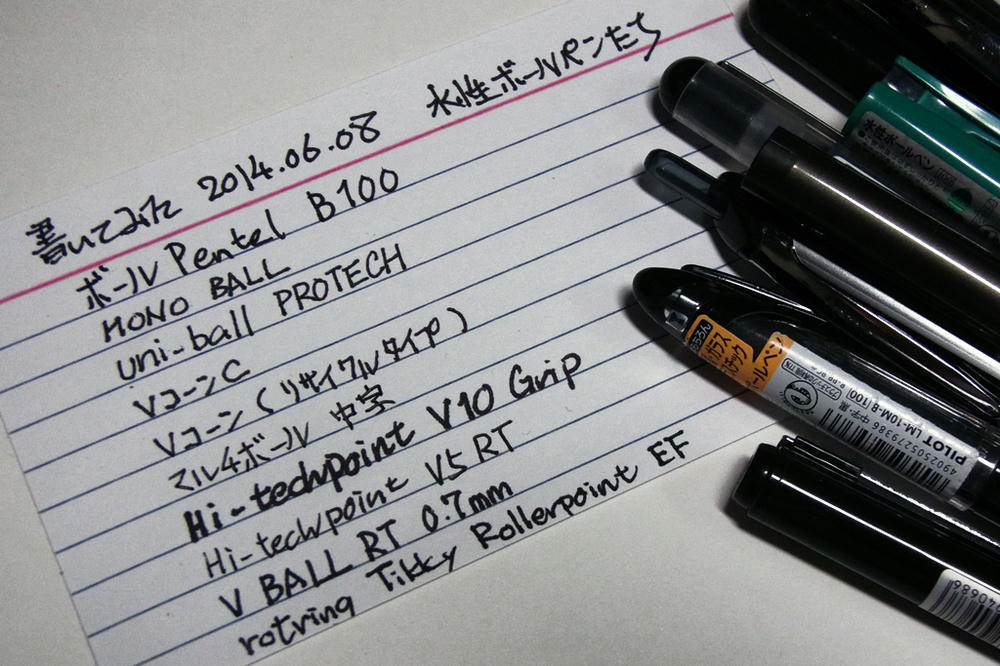 水性ボールペンたち
書いてみた 2014.06.08
ボール Pentel B100
MONO BALL
uni-ball PROTECH
VコーンC
Vコーン(リサイクルタイプ)
マルチボール 中字
Hi-techpoint V10 Grip
Hi-techpoint V5 RT
V BALL RT 0.7mm
rotring Tikky Rollerpoint EF
水性ボールペン
ガラス
ールペン
中字・黒
4902505279386
PILOT LM-10M-B [100]
40686